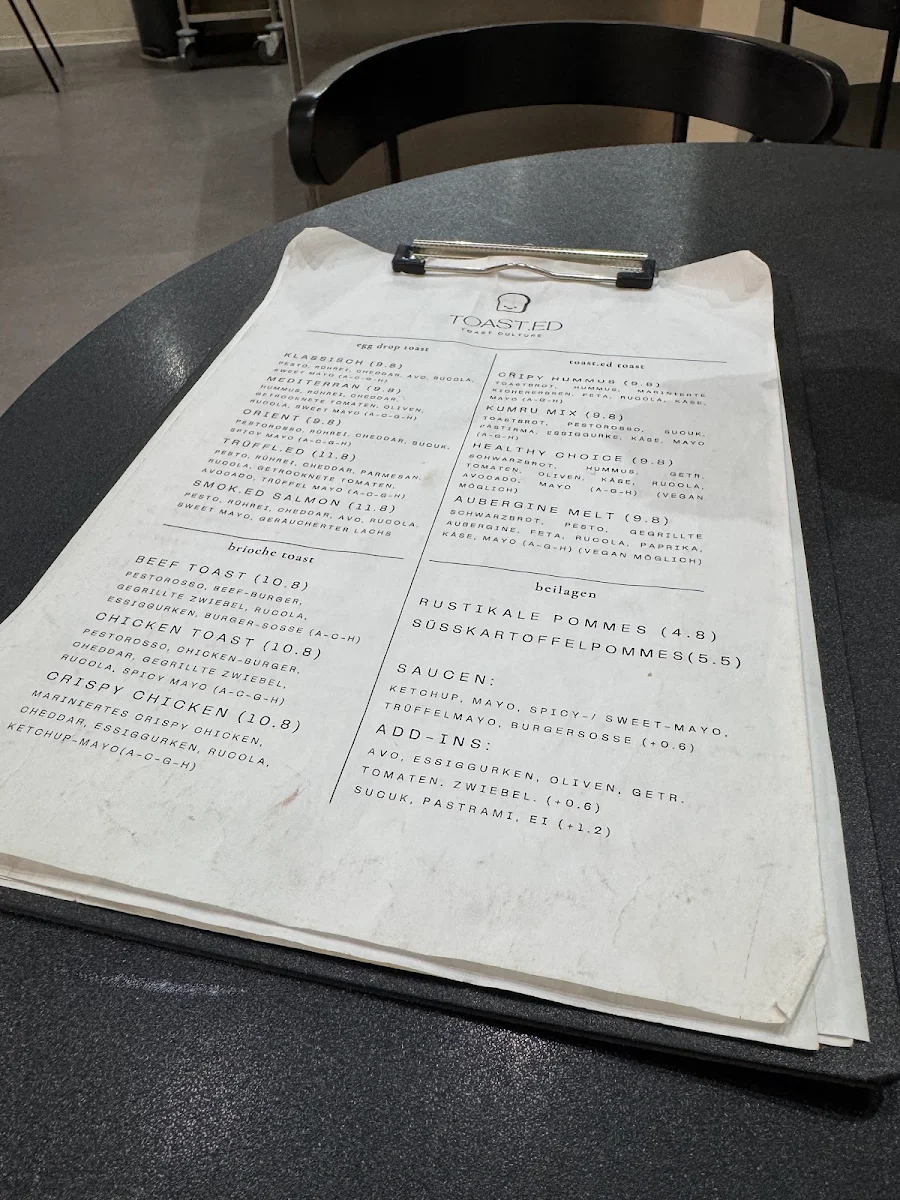 TOAST.ED
TOAST CULTURE
egg drop toast
KLASSISCH (9.8)
PESTO, RÜHREI, CHEDDAR, AVO, RUCOLA,
SWEET MAYO (A-C-G-H)
MEDITERRAN (9.8)
HUMMUS, RÜHREI, CHEDDAR,
GETROCKNETE TOMATEN, OLIVEN,
RUCOLA, SWEET MAYO (A-C-G-H)
ORIENT (9.8)
PESTOROSSO, RÜHREI, CHEDDAR, SUCUK,
SPICY MAYO (A-C-G-H)
TRÜFFL.ED (11.8)
PESTO, RÜHREI, CHEDDAR, PARMESAN,
RUCOLA, GETROCKNETE TOMATEN,
AVOCADO, TRÜFFEL MAYO (A-C-G-H)
SMOK.ED SALMON (11.8)
PESTO, RÜHREI, CHEDDAR, AVO, RUCOLA,
SWEET MAYO, GERÄUCHERTER LACHS
brioche toast
BEEF TOAST (10.8)
PESTOROSSO, BEEF-BURGER,
GEGRILLTE ZWIEBEL, RUCOLA,
ESSIGGURKEN, BURGER-SOSSE (A-C-H)
CHICKEN TOAST (10.8)
PESTOROSSO, CHICKEN-BURGER,
CHEDDAR, GEGRILLTE ZWIEBEL,
RUCOLA, SPICY MAYO (A-C-G-H)
CRISPY CHICKEN (10.8)
MARINIERTES CRISPY CHICKEN,
CHEDDAR, ESSIGGURKEN, RUCOLA,
KETCHUP-MAYO(A-C-G-H)
toast.ed toast
CRIPY HUMMUS (9.8)
TOASTBROT, HUMMUS, MARINIERTE
KICHERERBREN, FETA, RUCOLA, KÄSE,
MAYO (A-G-H)
KUMRU MIX (9.8)
TOASTBROT, PESTOROSSO, SUCUK,
PASTIRMA, ESSIGGURKE, KÄSE, MAYO
(A-G-H)
HEALTHY CHOICE (9.8)
SCHWARZBROT, HUMMUS, GETR.
TOMATEN, OLIVEN, KÄSE, RUCOLA,
AVOCADO, MAYO (A-G-H) (VEGAN
MÖGLICH)
AUBERGINE MELT (9.8)
SCHWARZBROT, PESTO, GEGRILLTE
AUBERGINE, FETA, RUCOLA, PAPRIKA,
KÄSE, MAYO (A-G-H) (VEGAN MÖGLICH)
beilagen
RUSTIKALE POMMES (4.8)
SÜSSKARTOFFELPOMMES(5.5)
SAUCEN:
KETCHUP, MAYO, SPICY-/ SWEET-MAYO,
TRÜFFELMAYO, BURGERSOSSE (+0.6)
ADD-INS:
AVO, ESSIGGURKEN, OLIVEN, GETR.
TOMATEN. ZWIEBEL. (+0.6)
SUCUK, PASTRAMI, EI (+1.2)